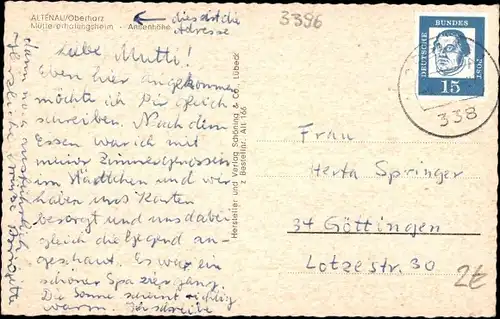 ALTENAU/Oberharz
Müttererholungsheim - Annenhöhe
← dies ist die
Adresse
3396
DEUTSCHE BUNDESPOST
15
338
Liebe Mutti!
Eben hier angekommen
möchte ich Dir gleich
schreiben. Nach dem
Essen war ich mit
meiner Zimmergenossin
im Städtchen und wir
haben uns Karten
besorgt und uns dabei
gleich die Gegend an-
geschaut. Es war ein
schöner Spaziergang.
Die Sonne scheint richtig
warm. Ich schreibe
Dann noch ausführlich
Herzliche
Hersteller und Verlag Schöning & Co., Lübeck
z Bestellnr. Alt 165
Frau
Herta Springer
34 Göttingen
Lotzestr. 30
2€